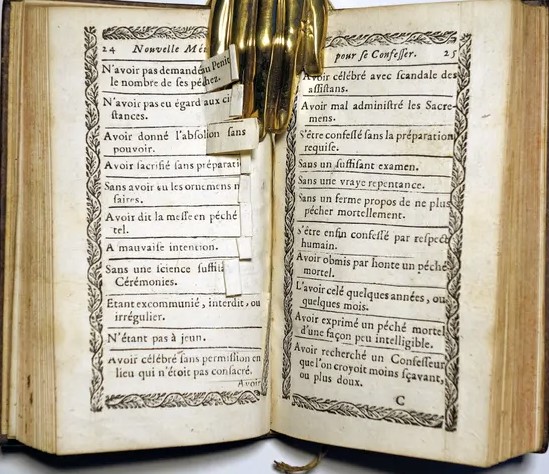 24 Nouvelle Mét
N'avoir pas demandé au Penit
le nombre de ses péchez.
N'avoir pas eu égard aux ci
stances.
Avoir donné l'absolution sans
pouvoir.
Avoir sacrifié sans préparati
Sans avoir eu les ornemens n
saires.
Avoir dit la messe en péché
tel.
A mauvaise intention.
Sans une science suffis
Cérémonies.
Etant excommunié, interdit, ou
irrégulier.
N'étant pas à jeun.
Avoir célébré sans permission en
lieu qui n'étoit pas consacré.
Avoir
pour se Confesser. 25
Avoir célébré avec scandale des
assistans.
Avoir mal administré les Sacre-
mens.
S'être confessé sans la préparation
requise.
Sans un suffisant examen.
Sans une vraye repentance.
Sans un ferme propos de ne plus
pécher mortellement.
S'étre enfin confessé par respect
humain.
Avoir obmis par honte un péché
mortel.
L'avoir celé quelques années, ou
quelques mois.
Avoir exprimé un péché mortel
d'une façon peu intelligible.
Avoir recherché un Confesseur
que l'on croyoit moins sçavant,
ou plus doux.
C